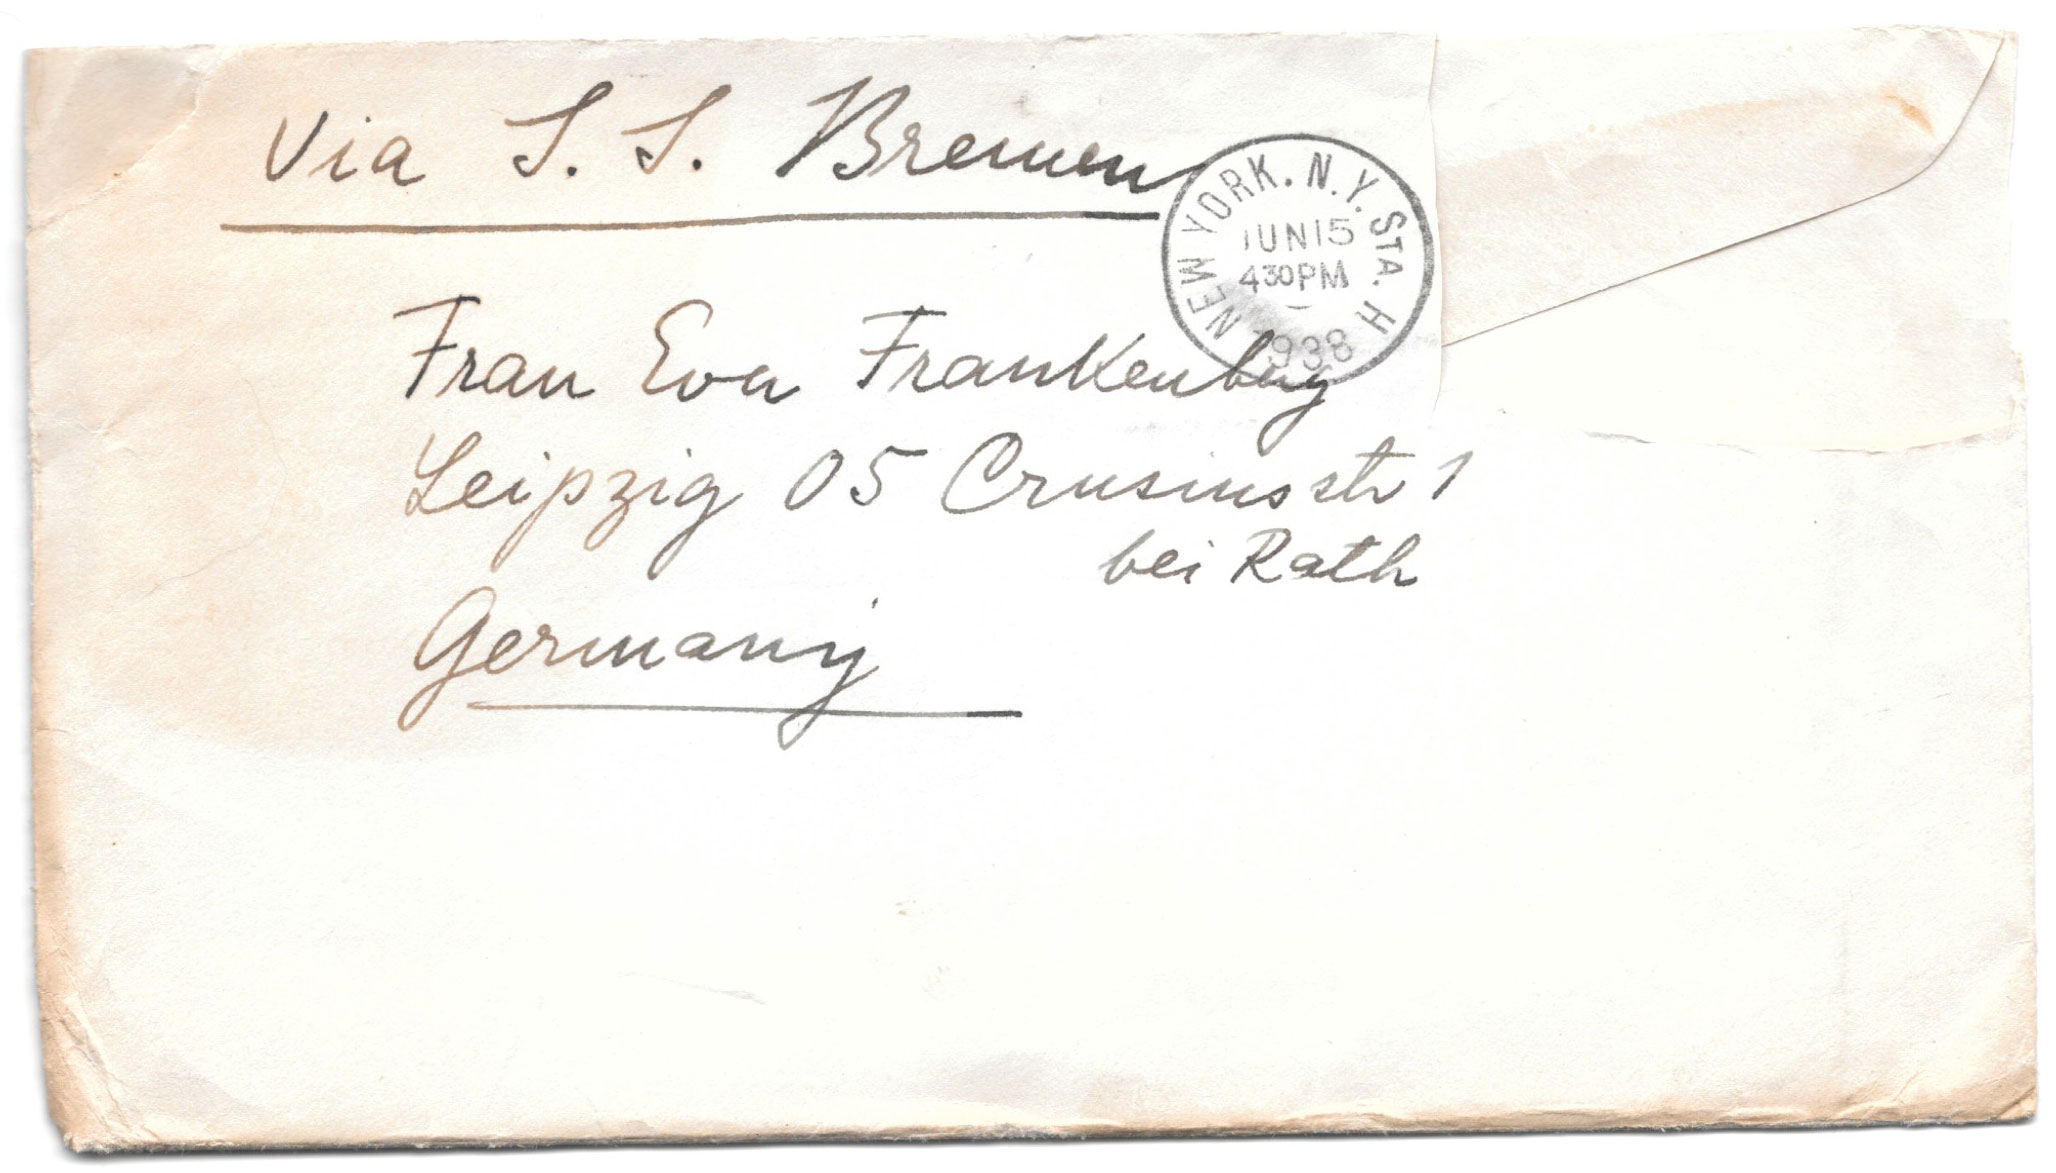 Via S. S. Bremen
NEW YORK, N.Y. STA. H
JUN 15
430 PM
1938
Frau Eva Frankenburg
Leipzig O5 Crusiusstr 1
bei Rath
Germany